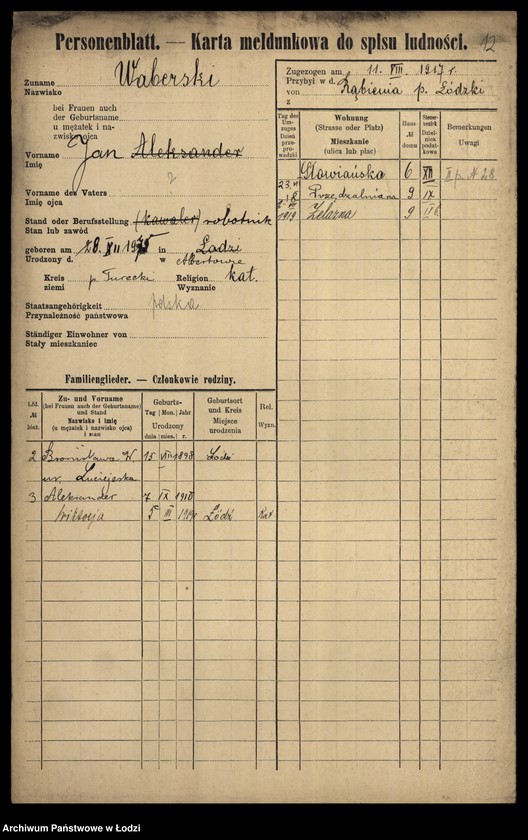 Personenblatt. — Karta meldunkowa do spisu ludności. 12
Zuname
Nazwisko
Waberski
bei Frauen auch
der Geburtsname
u mężatek i na-
zwisko ojca
Vorname
Imię
Jan Aleksander
Vorname des Vaters
Imię ojca
Stand oder Berufsstellung
Stan lub zawód
(kawaler) robotnik
geboren am
Urodzony d.
28. XII in
w
Łodzi
Albertowie
Kreis
ziemi
p. Turecki
Religion
Wyznanie
kat.
Staatsangehörigkeit
Przynależność państwowa
polska
Ständiger Einwohner von
Stały mieszkaniec
Zugezogen am
Przybył w d.
11. VIII. 1917 r.
von
z
Rąbienia p. Łódzki
Tag des
Um-
zuges
Dzień
przepro-
wadzki
Wohnung
(Strasse oder Platz)
Mieszkanie
(ulica lub plac)
Haus-
№
domu
Steuer-
bezirk
Dziel-
nica
podat-
kowa
Bemerkungen
Uwagi
Słowiańska 6 XII II p. № 28
Przędzalniana 9 IX
1919 Żelazna 9
Familienglieder. — Członkowie rodziny.
Lfd.
№
bież.
Zu- und Vorname
(bei Frauen auch der Geburtsname)
und Stand
Nazwisko i imię
(u mężatek i nazwisko ojca)
i stan
Geburts-
Tag Mon. Jahr
Urodzony
dnia mies. r.
Geburtsort
und Kreis
Miejsce
urodzenia
Rel.
Wyzn.
2 Bronisława W. 15 VIII 1898 Łódź
ur.
3 Aleksander 7 IX 1918
Wiktorja 5 III Łódź Kat
Archiwum Państwowe w Łodzi